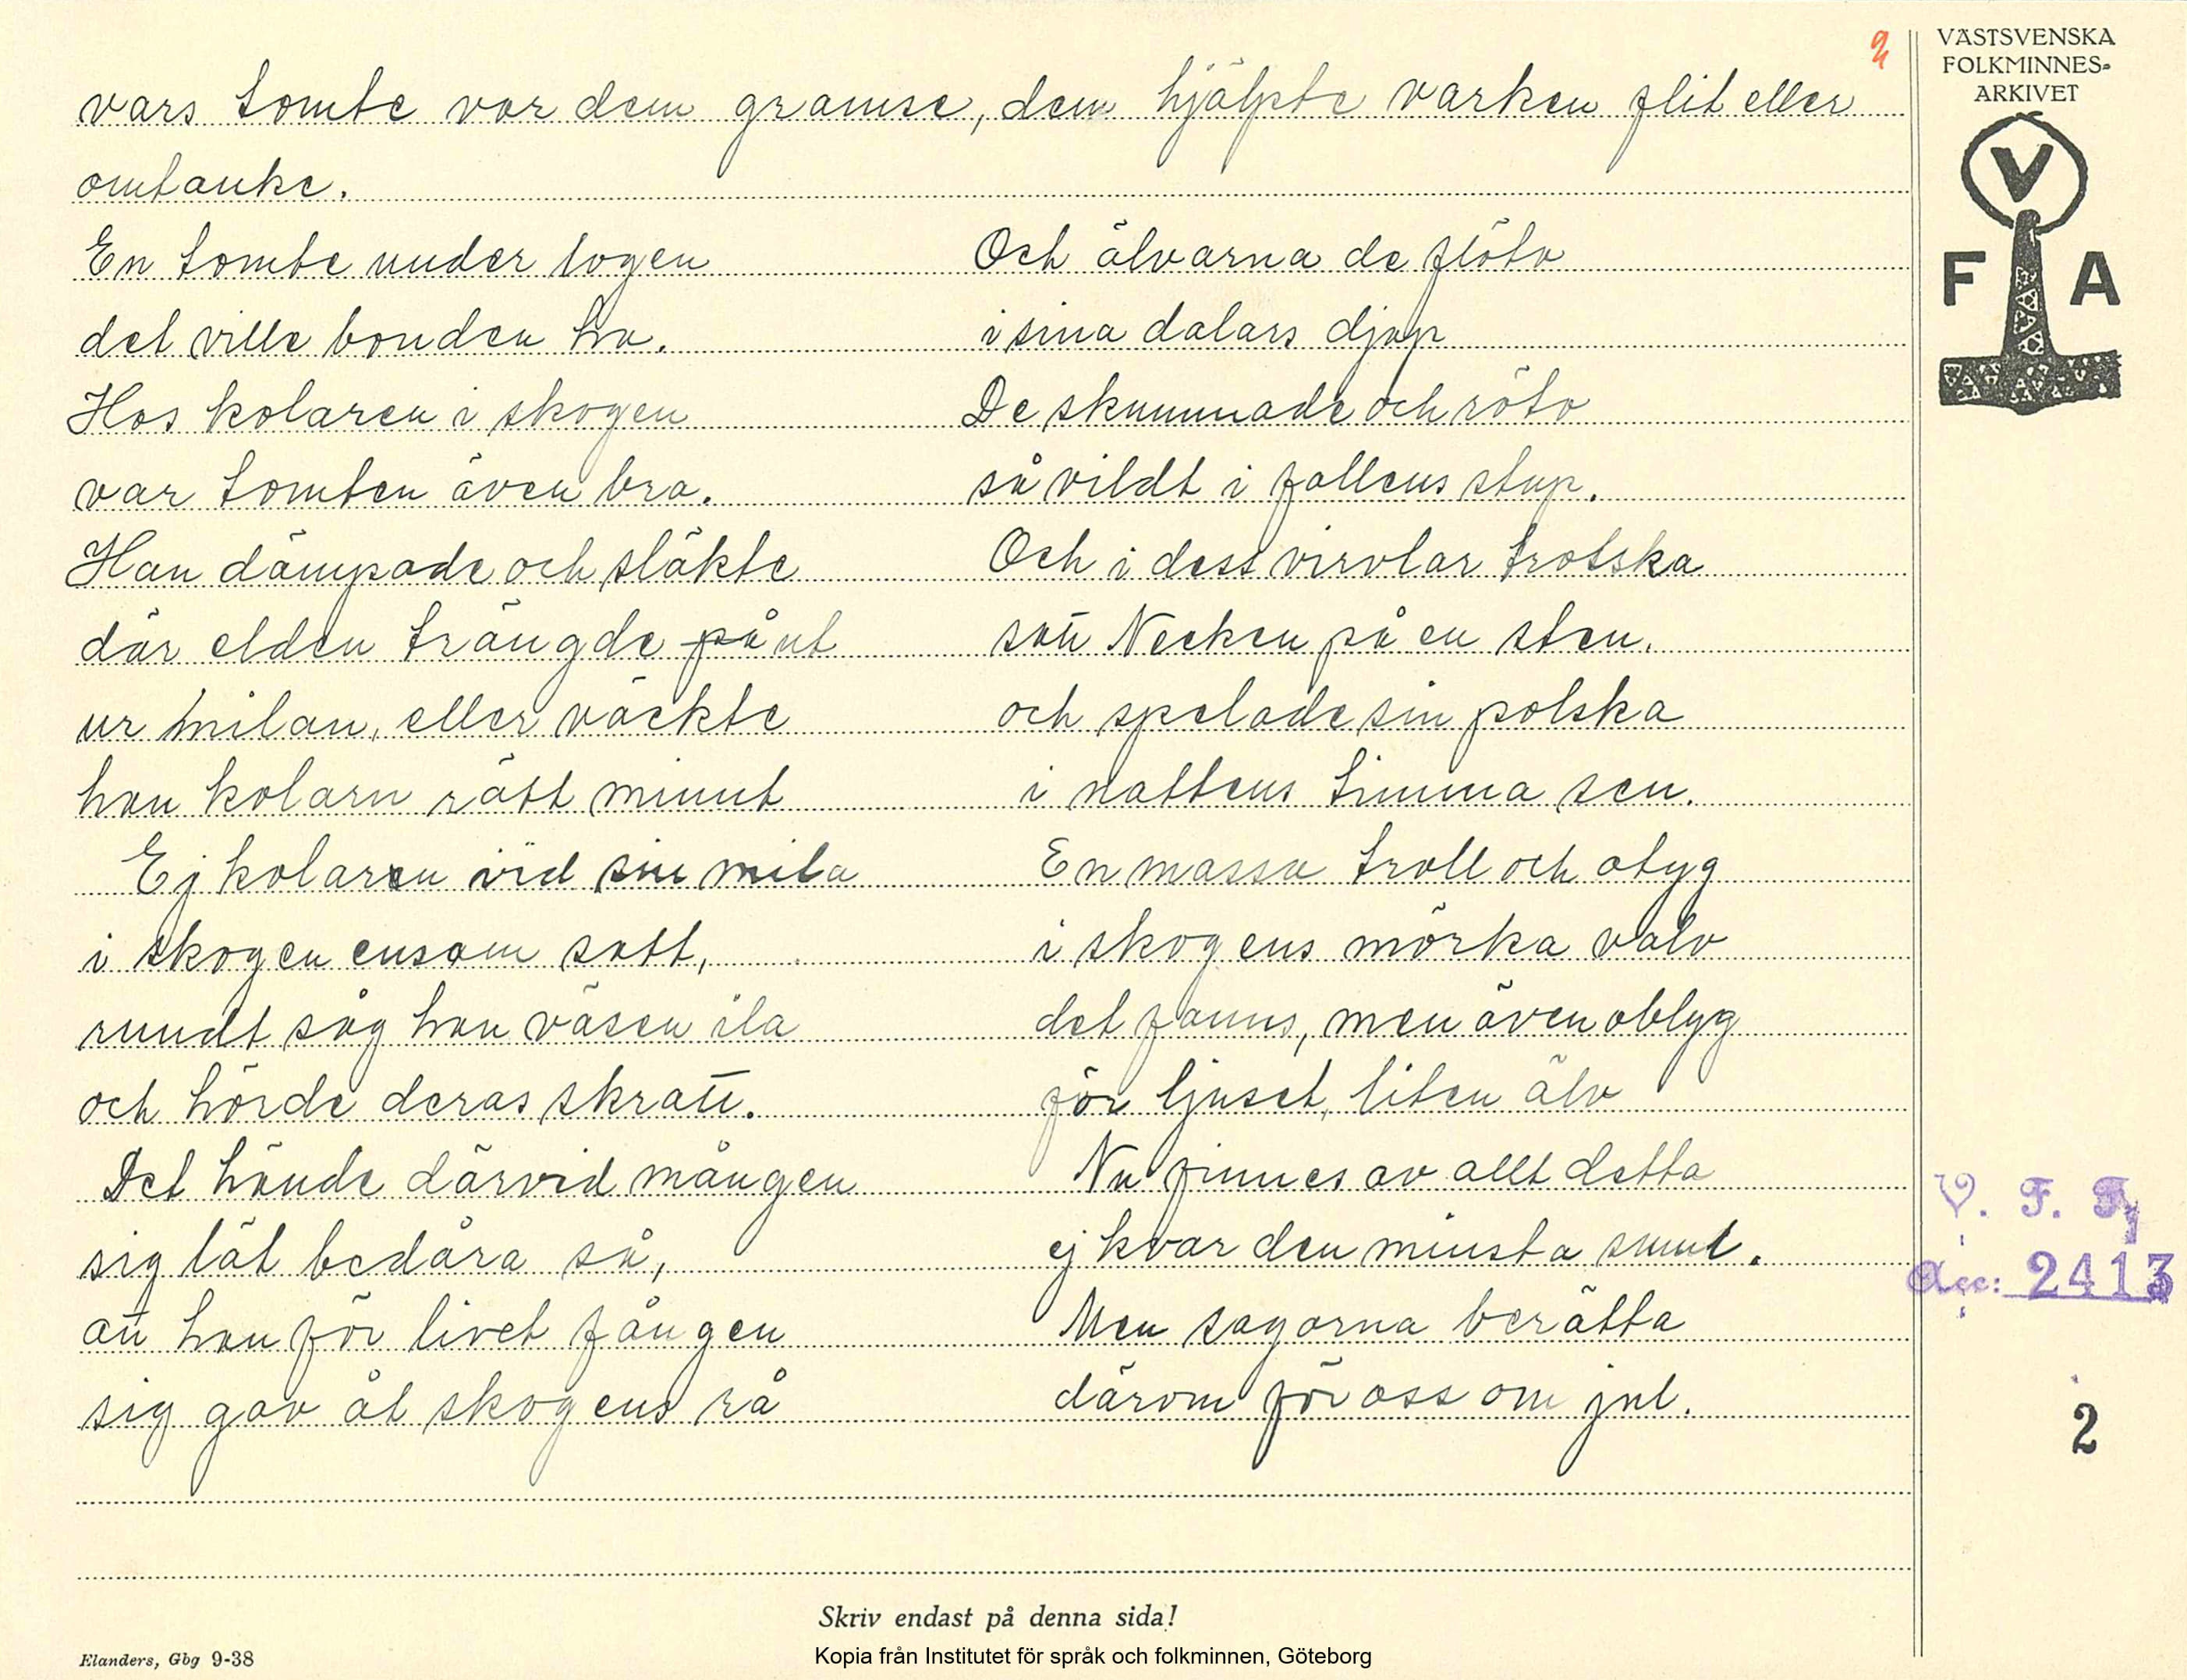 2
VÄSTSVENSKA
FOLKMINNES-
ARKIVET
V
F A
vars tomte var dem gramse, dem hjälpte varken flit eller
omtanke.
En tomte under logen
det ville bonden ha.
Hos kolaren i skogen
var tomten även bra.
Han dämpade och släkte
där elden trängde på ut
ur milan, eller väckte
han kolarn rätt minut
Ej kolaren vid sin mila
i skogen ensam satt,
rundt såg han väsen ila
och hörde deras skratt.
Det hände därvid mången
sig lät bedåra så,
att han för livet fången
sig gav åt skogens rå
Och älvarna de flöto
i sina dalars djup
De skummade och röto
så vildt i fallens stup.
Och i dess virvlar trotska
satt Necken på en sten.
och spelade sin polska
i nattens timma sen.
En massa troll och otyg
i skogens mörka valv
det fanns, men även oblyg
för ljuset, liten älv
Nu finnes av allt detta
ej kvar den minsta smul.
Men sagorna berätta
därom för oss om jul.
V. F. F.
Acc: 2413
2
Skriv endast på denna sida!
Elanders, Gbg 9-38
Kopia från Institutet för språk och folkminnen, Göteborg